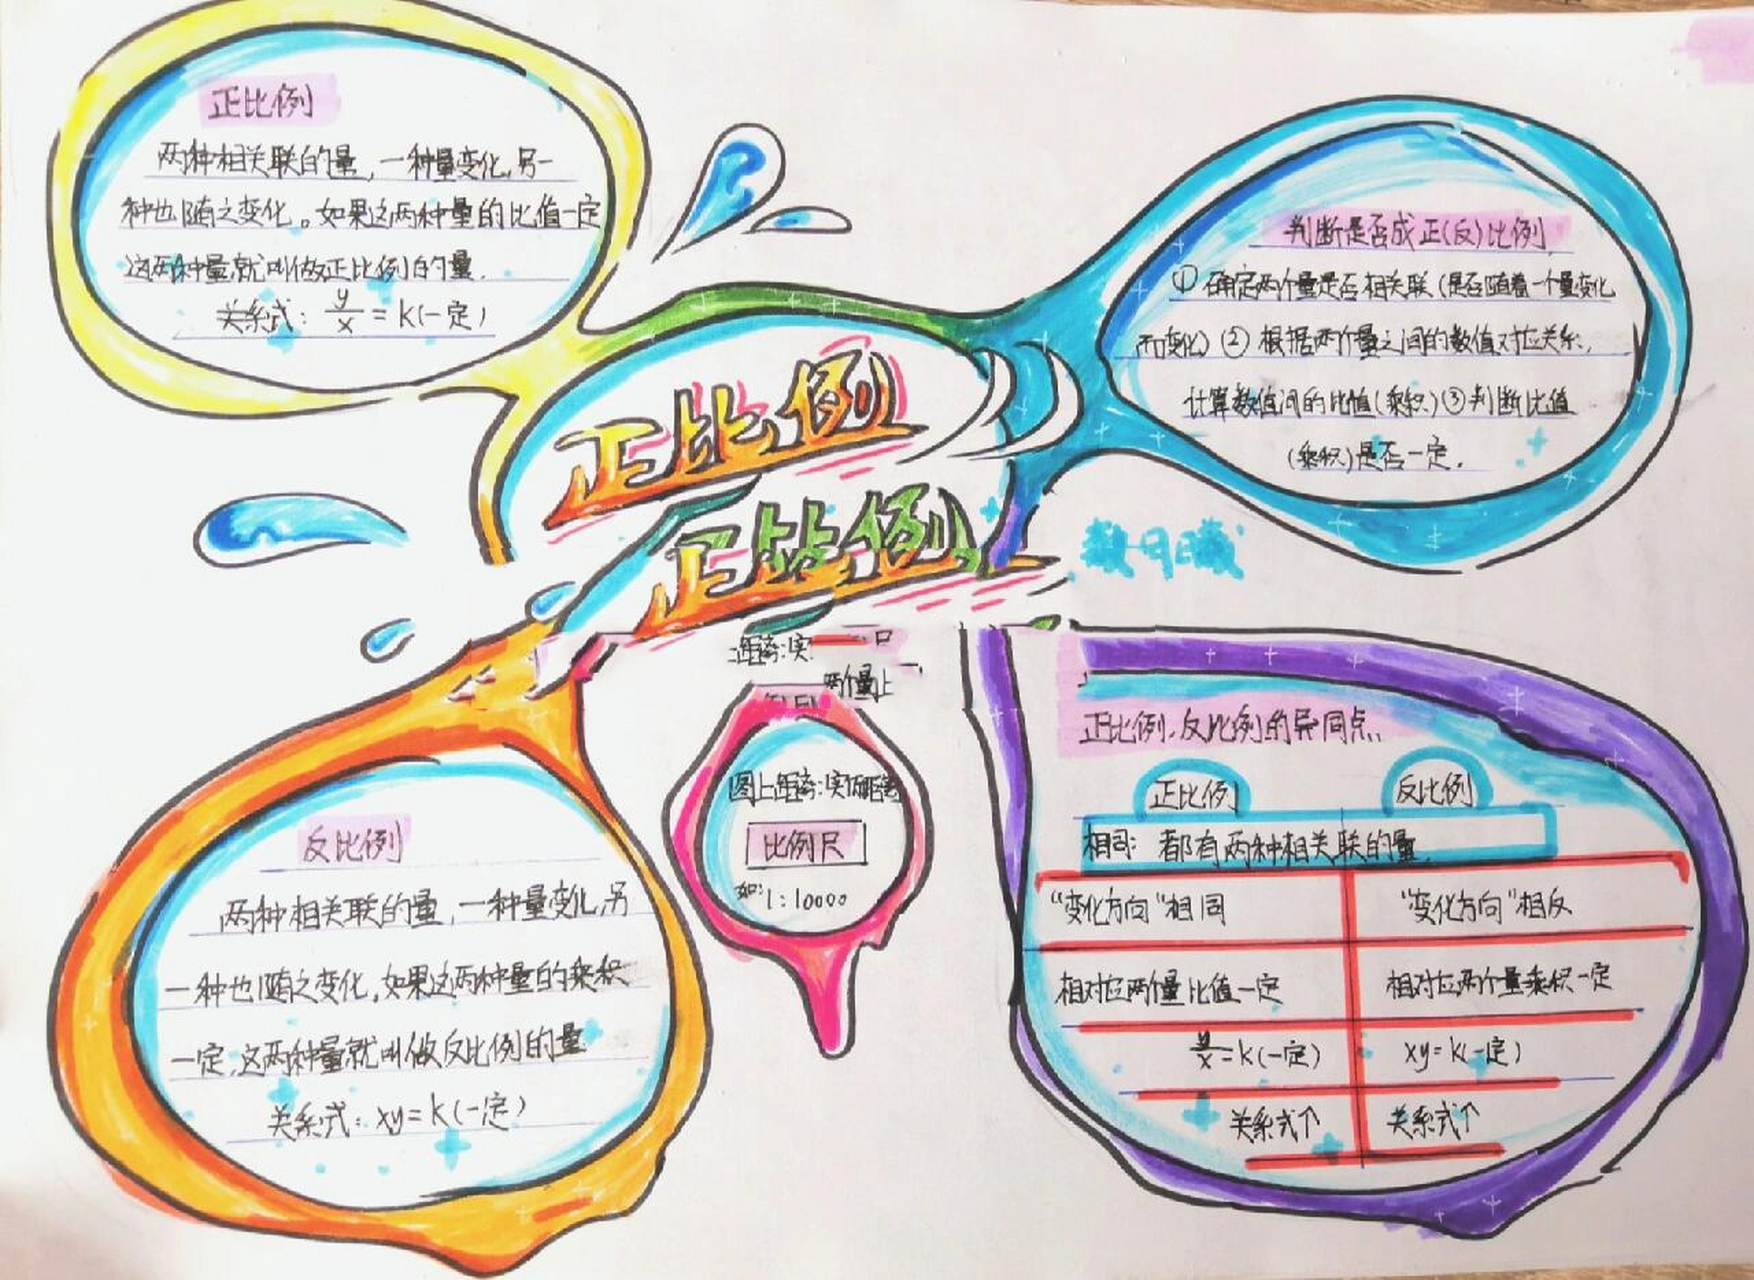 正比例
两种相关联的量,一种量变化,另一
种也随之变化。如果这两种量的比值一定
这两种量就叫做正比例的量.
关系式: y/x = k(一定)
判断是否成正(反)比例
① 确定两个量是否相关联(是否随着一个量变化
而变化) ② 根据两个量之间的数值对应关系,
计算数值间的比值(乘积)③判断比值
(乘积)是否一定.
正比例
正 例
距离:实
尺
两个量上
图上距离:实际距离
比例尺
如: 1:10000
反比例
两种相关联的量,一种量变化,另
一种也随之变化,如果这两种量的乘积
一定,这两种量就叫做反比例的量
关系式: xy=k(一定)
正比例、反比例的异同点
正比例 反比例
相同: 都有两种相关联的量.
"变化方向"相同 "变化方向"相反
相对应两个量比值一定 相对应两个量乘积一定
y/x=k(一定) xy=k(一定)
关系式个 关系式个